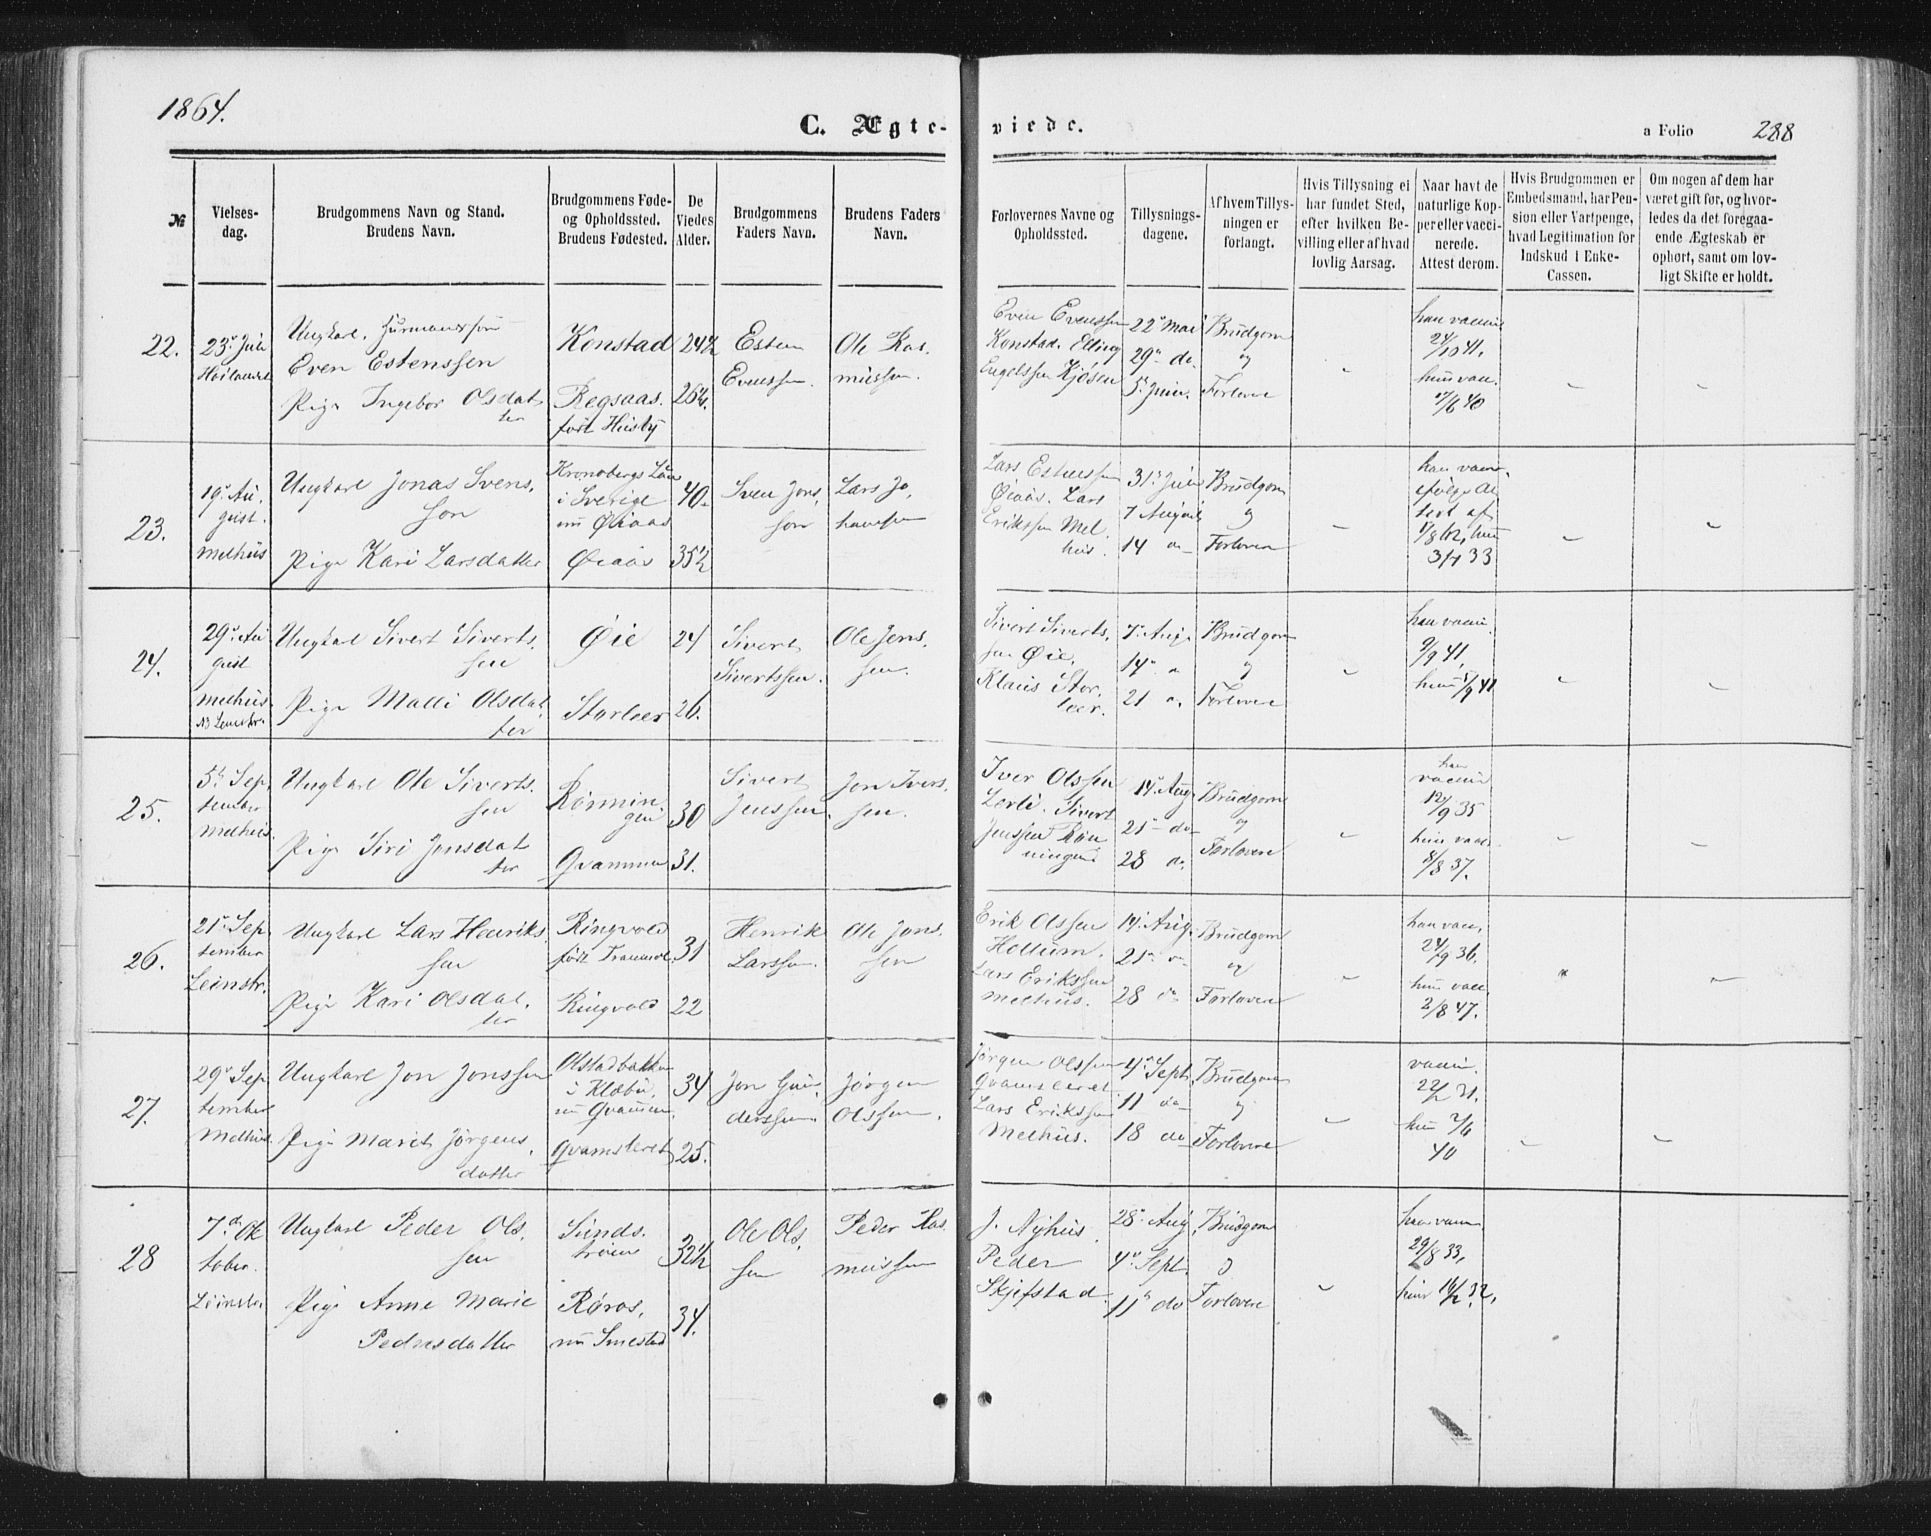 1864.
C. Ægte-
viede.
a Folio 288
№
Vielses-
dag.
Brudgommens Navn og Stand.
Brudens Navn.
Brudgommens Føde-
og Opholdssted.
Brudens Fødested.
De
Viedes
Alder.
Brudgommens
Faders Navn.
Brudens Faders
Navn.
Forlovernes Navne og
Opholdssted.
Tillysnings-
dagene.
Af hvem Tillys-
ningen er
forlangt.
Hvis Tillysning ei
har fundet Sted,
efter hvilken Be-
villing eller af hvad
lovlig Aarsag.
Naar havt de
naturlige Kop-
per eller vacci-
nerede.
Attest derom.
Hvis Brudgommen er
Embedsmand, har Pen-
sion eller Vartpenge,
hvad Legitimation for
Indskud i Enke-
Cassen.
Om nogen af dem har
været gift før, og hvor-
ledes da det foregaa-
ende Ægteskab er
ophørt, samt om lov-
ligt Skifte er holdt.
22.
Ungkarl,
Even Estenssen
Pige Ingebor Olsdat
ter
Konstad
Regsaas.
født Huseby
24½
26¼.
Esten
Evenssen.
Ole Ras-
mussen.
Even Evenssen
Konstad. Elling
Engelssen Kjøsen
22de Mai
29de do.
5te Juni.
Brudgom
og
Forlovere
han vaccin
24/10 41.
hun vacc.
17/6 40
23.
19de Au-
gust.
Melhus
Ungkarl Jonas Svens-
son
Pige Kari Larsdatter
Kronobergs Län
i Sverige
nu Øiaas
Øiaas
40
35½
Sven Jons-
son
Lars Jo-
hanssen
Lars Estenssen
Øiaas. Lars
Erikssen Mel-
hus.
31te Juli
7 August
14 do
Brudgom
og
Forlovere
han vacc.
ifølge At-
test af
1/8 62, hun
3/7 33
24.
29de Au-
gust
Melhus
Ungkarl Sivert Siverts-
sen
Pige Malli Olsdat-
ter
Øie
Storleer
24
26.
Sivert
Sivertssen.
Ole Jens-
sen.
Sivert Siverts-
sen Øie.
Klaus Stor-
leer.
7de Aug.
14de do
21 do.
Brudgom
og
Forlovere
han vaccin.
9/9 41,
hun 5/9 41
25.
5te Sep-
tember
Melhus.
Ungkarl Ole Siverts-
sen
Pige Siri Jonsdat
ter
Rønnin-
gen
Qvammen
30
31.
Sivert
Jenssen.
Jon Ivers-
sen.
Iver Olssen
Lerli. Sivert
Jenssen Røn-
ningen
14de Aug.
21de do
28 do.
Brudgom
og
Forlovere
han
vaccin
12/9 35
hun vacc.
8/8 37.
26.
21de Sep-
tember
Leinstr.
Ungkarl Lars Henriks-
sen
Pige Kari Olsdat-
ter
Ringvold
Ringvold
31
22
Henrik
Larssen.
Ole Jons-
sen
Erik Olssen
Hollum.
Lars Erikssen
Melhus.
14de Aug.
21de do
28 do
Brudgom
og
Forlovere
han vacc.
24/9 36.
hun vacc.
2/8 47.
27.
29de Sep-
tember
Melhus
Ungkarl Jon Jonssen
Pige Marit Jørgens-
datter
Olstadbakken
i Klæbu,
nu Qvammen
Qvamsleret
34
25.
Jon Gun-
derssen
Jørgen
Olssen.
Jørgen Olssen
Qvamsleret
Lars Erikssen
Melhus.
4de Sept.
11 do
18 do
Brudgom
og
Forlovere
vaccin.
22/2 31.
hun 7/6
40
28
7de Ok-
tober.
Leinstr.
Ungkarl Peder Ols-
sen
Pige Anne Marie
Pedersdatter
Sunds-
trøen
Røros,
nu Smestad
32½
34.
Ole Ols-
sen
Peder Ras-
mussen
J. Nyhus.
Peder
Skjefstad.
28de Aug.
4de Sept.
11te do
Brudgom
og
Forlovere
han vaccin.
29/8 33,
hun 16/2 32.